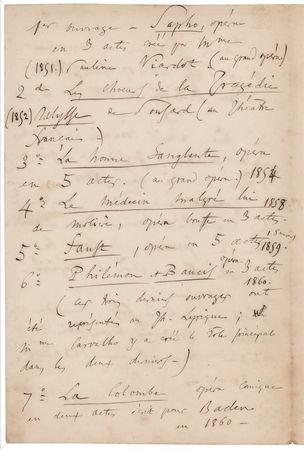 1er ouvrage - Sapho, opéra
en 3 actes créé par Mme
(1851.) Pauline Viardot (au grand opéra)
2o Les choeurs de la Tragédie
(1852) Ulysse de Ponsard (au Théâtre
français)
3o La nonne Sanglante, opéra
en 5 actes. (au grand opéra.) 1854
4o Le médecin malgré lui 1858
de molière, opéra bouffe en 3 actes.
5o Faust, opéra en 5 actes 1859.
6o Philémon & Baucis opéra en 3 actes
1860.
(ces trois derniers ouvrages ont
été représentés au Th. Lyrique;
Mme Carvalho y a créé le rôle principal
dans les deux derniers-)
7o La Colombe opéra Comique
en deux actes écrit pour Baden
en 1860-